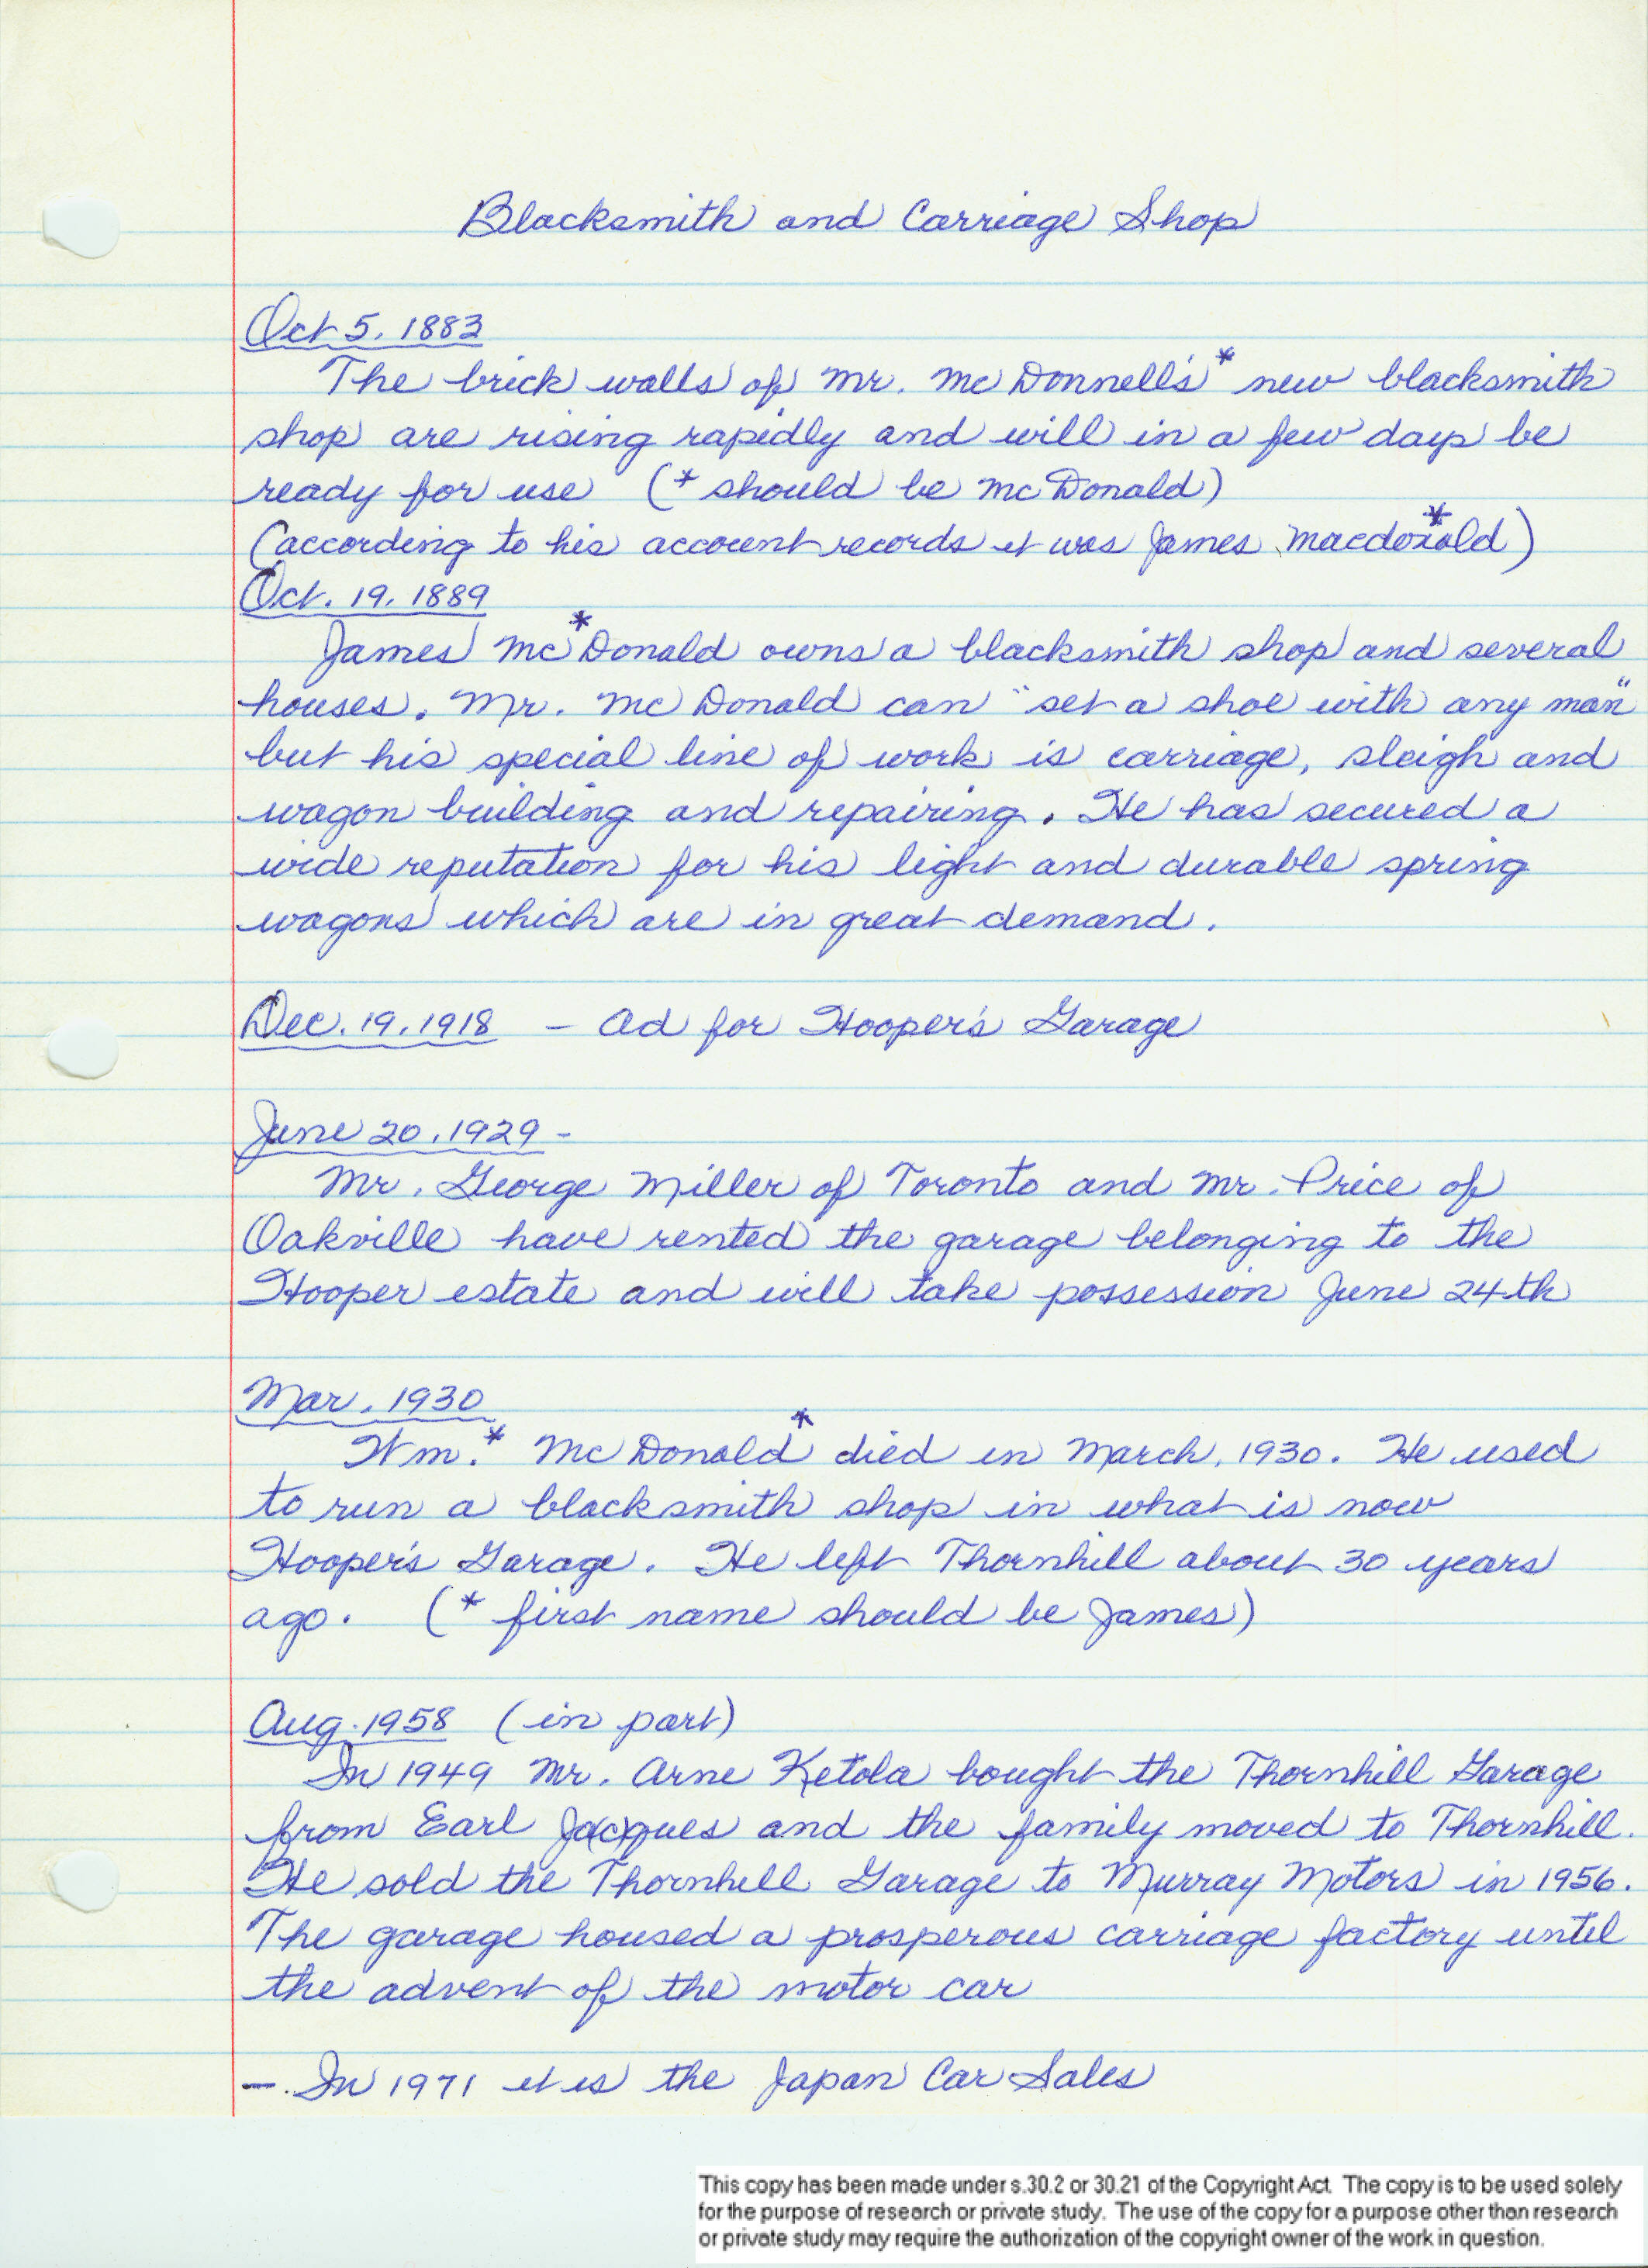 Blacksmith and Carriage Shop
Oct 5, 1883
The brick walls of Mr. McDonnell's* new blacksmith
shop are rising rapidly and will in a few days be
ready for use (* should be McDonald)
(according to his account records it was James Macdonald*)
Oct. 19, 1889
James Mc*Donald owns a blacksmith shop and several
houses. Mr. McDonald can "set a shoe with any man"
but his special line of work is carriage, sleigh and
wagon building and repairing. He has secured a
wide reputation for his light and durable spring
wagons which are in great demand.
Dec. 19, 1918 - Ad for Hooper's Garage
June 20, 1929 -
Mr. George Miller of Toronto and Mr. Price of
Oakville have rented the garage belonging to the
Hooper estate and will take possession June 24th
Mar. 1930
Wm.* McDonald* died in March, 1930. He used
to run a blacksmith shop in what is now
Hooper's Garage. He left Thornhill about 30 years
ago. (* first name should be James)
Aug. 1958 (in part)
In 1949 Mr. Arne Ketola bought the Thornhill Garage
from Earl Jacques and the family moved to Thornhill.
He sold the Thornhill Garage to Murray Motors in 1956.
The garage housed a prosperous carriage factory until
the advent of the motor car
-. In 1971 it is the Japan Car Sales
This copy has been made under s.30.2 or 30.21 of the Copyright Act. The copy is to be used solely
for the purpose of research or private study. The use of the copy for a purpose other than research
or private study may require the authorization of the copyright owner of the work in question.